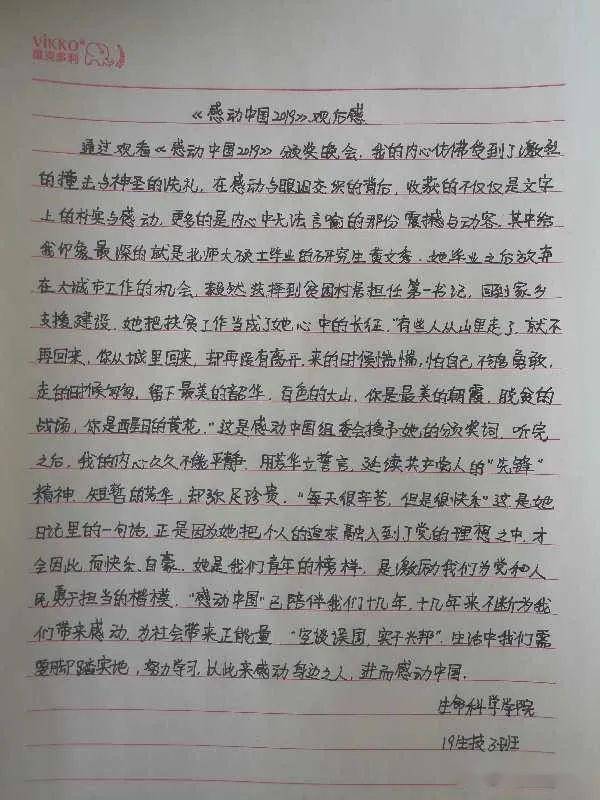 VIKKO®
维克多利
《感动中国2019》观后感
通过观看《感动中国2019》颁奖晚会,我的内心仿佛受到了激烈
的撞击与神圣的洗礼,在感动与眼泪交织的背后,收获的不仅仅是文字
上的朴实与感动,更多的是内心中无法言喻的那份震撼与动容。其中给
我印象最深的就是北师大硕士毕业的研究生黄文秀。她毕业之后放弃
在大城市工作的机会,毅然选择到贫困村居担任第一书记,回到家乡
支援建设,她把扶贫工作当成了她心中的长征。"有些人从山里走了,就不
再回来,你从城里回来,却再没有离开.来的时候惴惴,怕自己不够勇敢,
走的时候匆匆,留下最美的韶华,百色的大山,你是最美的朝霞,脱贫的
战场,你是醒目的黄花。"这是感动中国组委会授予她的颁奖词,听完
之后,我的内心久久不能平静,用芳华立誓言,延续共产党人的"先锋"
精神,短暂的芳华,却弥足珍贵。"每天很辛苦,但是很快乐"这是她
日记里的一句话,正是因为她把个人的追求融入到了党的理想之中,才
会因此而快乐、自豪。她是我们青年的榜样,是激励我们为党和人
民勇于担当的楷模。"感动中国"已陪伴我们十几年,十几年来不断为我
们带来感动,为社会带来正能量"空谈误国,实干兴邦",生活中我们需
要脚踏实地,努力学习,以此来感动身边之人,进而感动中国.
生命科学学院
19生技3班